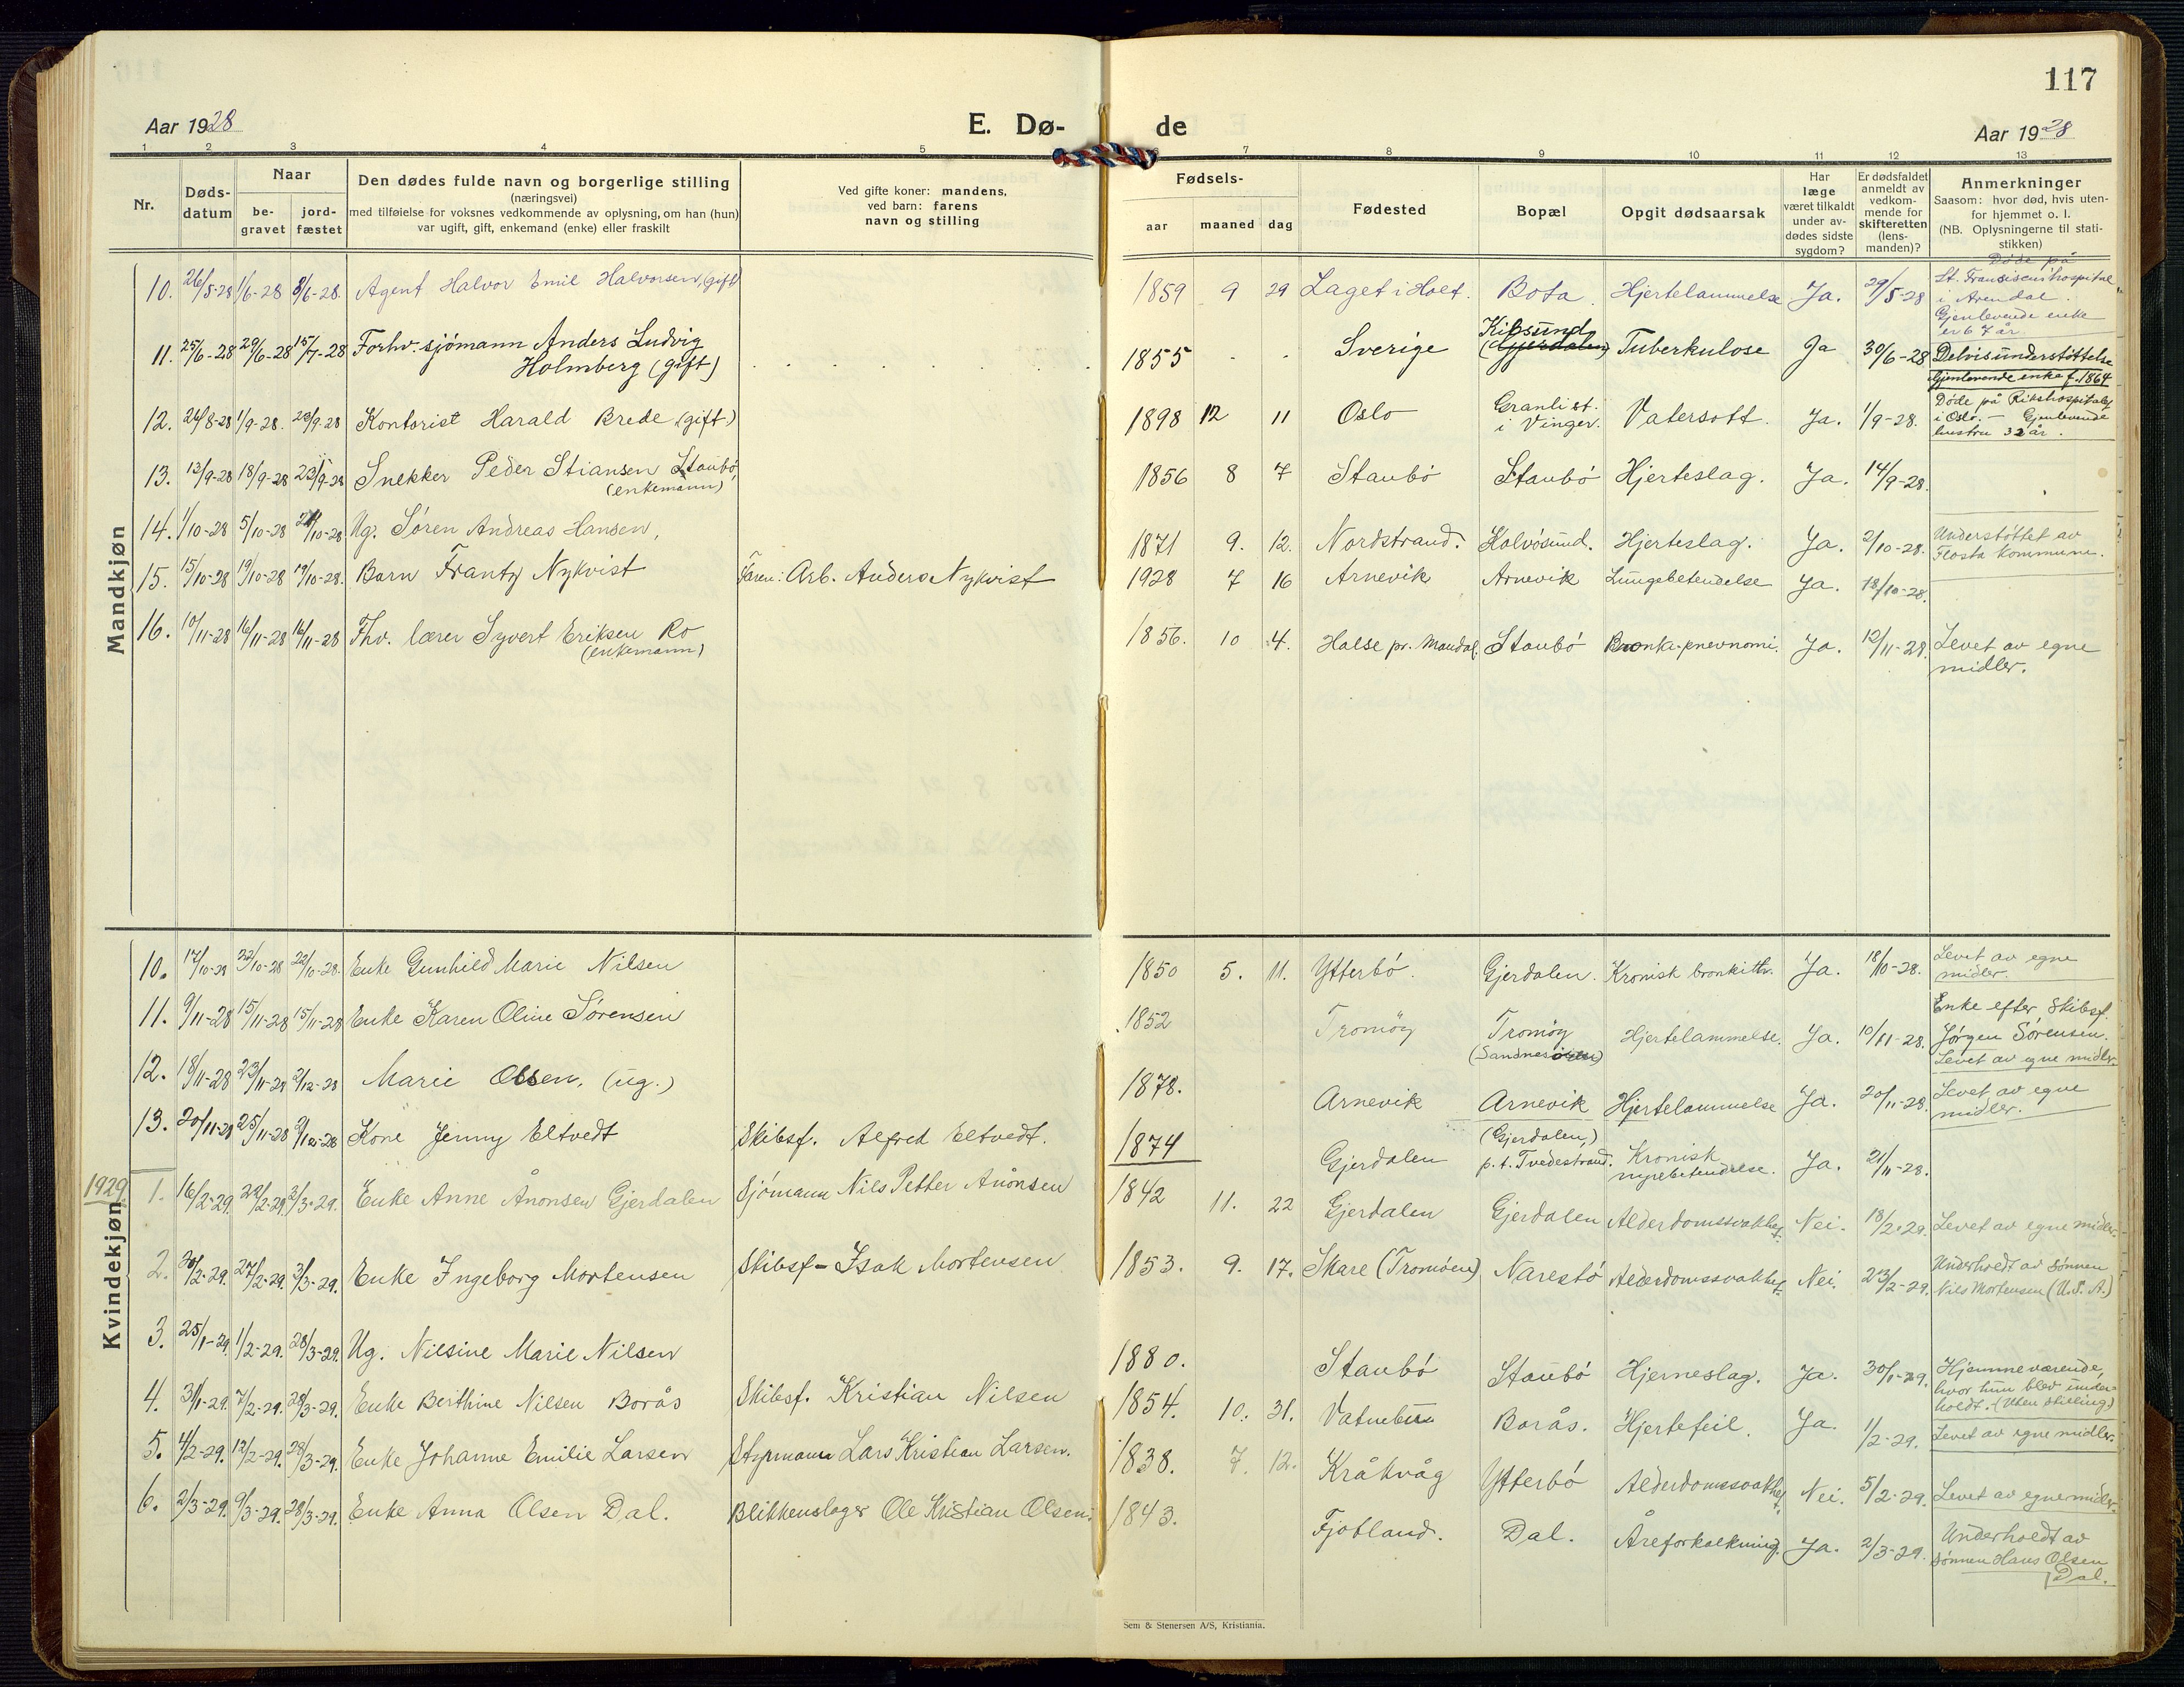 117
Aar 1928
E. Dø-
de
Aar 1928
1 2 3 4 5 7 8 9 10 11 12 13
Nr.
Døds-
datum
Naar
be-
gravet
jord-
fæstet
Den dødes fulde navn og borgerlige stilling
(næringsvei)
med tilføielse for voksnes vedkommende av oplysning, om han (hun)
var ugift, gift, enkemand (enke) eller fraskilt
Ved gifte koner: mandens,
ved barn: farens
navn og stilling
Fødsels-
aar maaned dag
Fødested
Bopæl
Opgit dødsaarsak
Har
læge
været tilkaldt
under av-
dødes sidste
sygdom?
Er dødsfaldet
anmeldt av
vedkom-
mende for
skifteretten
(lens-
manden)?
Anmerkninger
Saasom: hvor død, hvis uten-
for hjemmet o. l.
(NB. Oplysningerne til stati-
stikken)
Mandkjøn
10. 26/5-28 1/6-28 8/6-28. Agent Halvor Emil Halvorsen, (gift) 1859 9 29 Laget i Holt. Bota. Hjertelammelse Ja. 29/5-28
Døde på
St. Fransiscenshospital
i Arendal.
Gjenlevende enke
er 67 år.
11. 25/6-28 29/6-28 15/7-28 Forhv. sjömann Anders Ludvig
Holmberg (gift)
1855 - - Sverige Kilsund
(Gjerdalen) Tuberkulose Ja 30/6-28 Delvis understöttelse
Gjenlevende enke f. 1864
12. 24/8-28 1/9-28. 23/9-28 Kontorist Harald Brede (gift) 1898 12 11 Oslo Granli st.
i Vinger. Vatersott. Ja. 1/9-28.
Døde på Rikshospitalet
i Oslo. - Gjenlevende
hustru 32 år.
13. 13/9-28 18/9-28 23/9-28 Snekker Peder Stiansen Staubö,
(enkemann)
1856 8 7 Staubö Staubö Hjerteslag. Ja. 14/9-28.
14. 1/10-28 5/10-28 21/10-28 Ug. Sören Andreas Hansen, 1871 9. 12. Nordstrand. Kalvösund. Hjerteslag. Ja. 2/10-28. Understöttet av
Flosta kommune.
15. 15/10-28 19/10-28 19/10-28. Barn Frantz Nykvist Faren: Arb. Anders Nykvist 1928 7 16 Arnevik Arnevik Lungebetendelse Ja. 18/10-28.
16. 10/11-28 16/11-28 16/11-28 Fhv. lærer Syvert Eriksen Ro
(enkemann)
1856. 10 4. Halse pr. Mandal. Staubö Bronka-pnevnomi. Ja. 12/11-28. Levet av egne
midler.
Kvindekjøn
10. 17/10-28 22/10-28 22/10-28. Enke Gunhild Marie Nilsen 1850 5. 11. Ytterbö. Gjerdalen. Kronisk bronkitt. Ja. 18/10-28. Levet av egne
midler.
11. 9/11-28 15/11-28 15/11-28 Enke Karen Oline Sörensen 1852 Tromöy Tromöy
(Sandnes) Hjertelammelse. Ja. 10/11-28.
Enke efter Skibsf.
Jørgen Sørensen.
Levet av egne midler.
12. 18/11-28 23/11-28 2/12-28 Marie Olsen. (ug.) 1878. Arnevik Arnevik Hjertelammelse Ja. 20/11-28. Levet av egne
midler.
13. 20/11-28 25/11-28 9/12-28 Kone Jenny Eltvedt Skibsf. Alfred Eltvedt. 1874 Gjerdalen (Gjerdalen,)
p.t. Tvedestrand. Kronisk
nyrebetendelse. Ja. 21/11-28.
1929.
1. 16/2-29. 22/2-29. 3/3-29. Enke Anne Ånonsen Gjerdalen Sjömann Nils Petter Anönsen 1842 11. 22 Gjerdalen Gjerdalen Alderdomssvakhet. Nei. 18/2-29. Levet av egne midler.
2. 20/2-29. 27/2-29. 3/3-29. Enke Ingeborg Mortensen Skibsf- Isak Mortensen 1853. 9. 17. Skare (Tromöen) Narestö Alderdomssvakhet. Nei. 23/2-29.
Underholdt av sønnen
Nils Mortensen (U.S.A.)
3. 25/1-29. 1/2-29. 28/3-29. Ug. Nilsine Marie Nilsen 1880. Staubö Staubö Hjerneslag. Ja. 30/1-29.
Hjemmeværende,
hvor hun blev under-
holdt. (Uten stilling)
4. 31/1-29. 7/2-29. 28/3-29. Enke Berthine Nilsen Borås Skibsf. Kristian Nilsen 1854. 10. 31. Vatnebu Borås. Hjertefeil. Ja. 1/2-29. Levet av egne midler.
5. 4/2-29. 12/2-29. 28/3-29. Enke Johanne Emilie Larsen Styrmann Lars Kristian Larsen. 1838. 7. 12. Kråkvåg Ytterbö Alderdomssvakhet. Nei. 5/2-29. Levet av egne midler.
6. 2/3-29. 9/3-29. 28/3-29. Enke Anna Olsen Dal. Blikkenslager Ole Kristian Olsen. 1843. Fjotland. Dal. Åreforkalkning. Ja. 2/3-29.
Underholdt av
sønnen Hans Olsen
Dal.
Sem & Stenersen A/S, Kristiania.